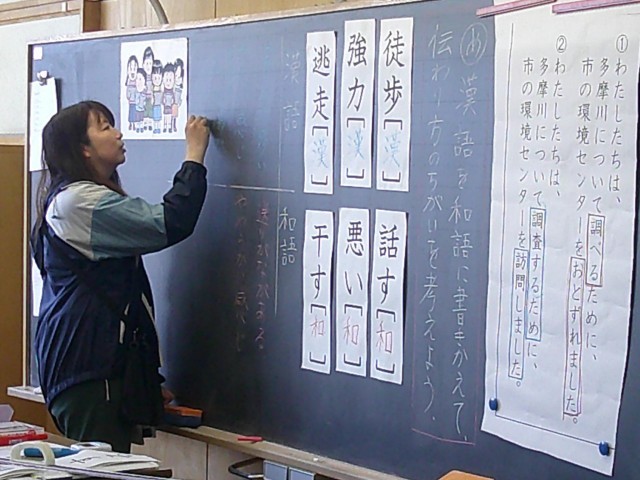 ①わたしたちは、
多摩川について調べるために、
市の環境センターをおとずれました。
②わたしたちは、
多摩川について調査するために、
市の環境センターを訪問しました。
め 漢語を和語に書きかえて、
伝わり方のちがいを考えよう。
徒歩［漢］
強力［漢］
逃走［漢］
話す［和］
悪い［和］
干す［和］
漢語
和語